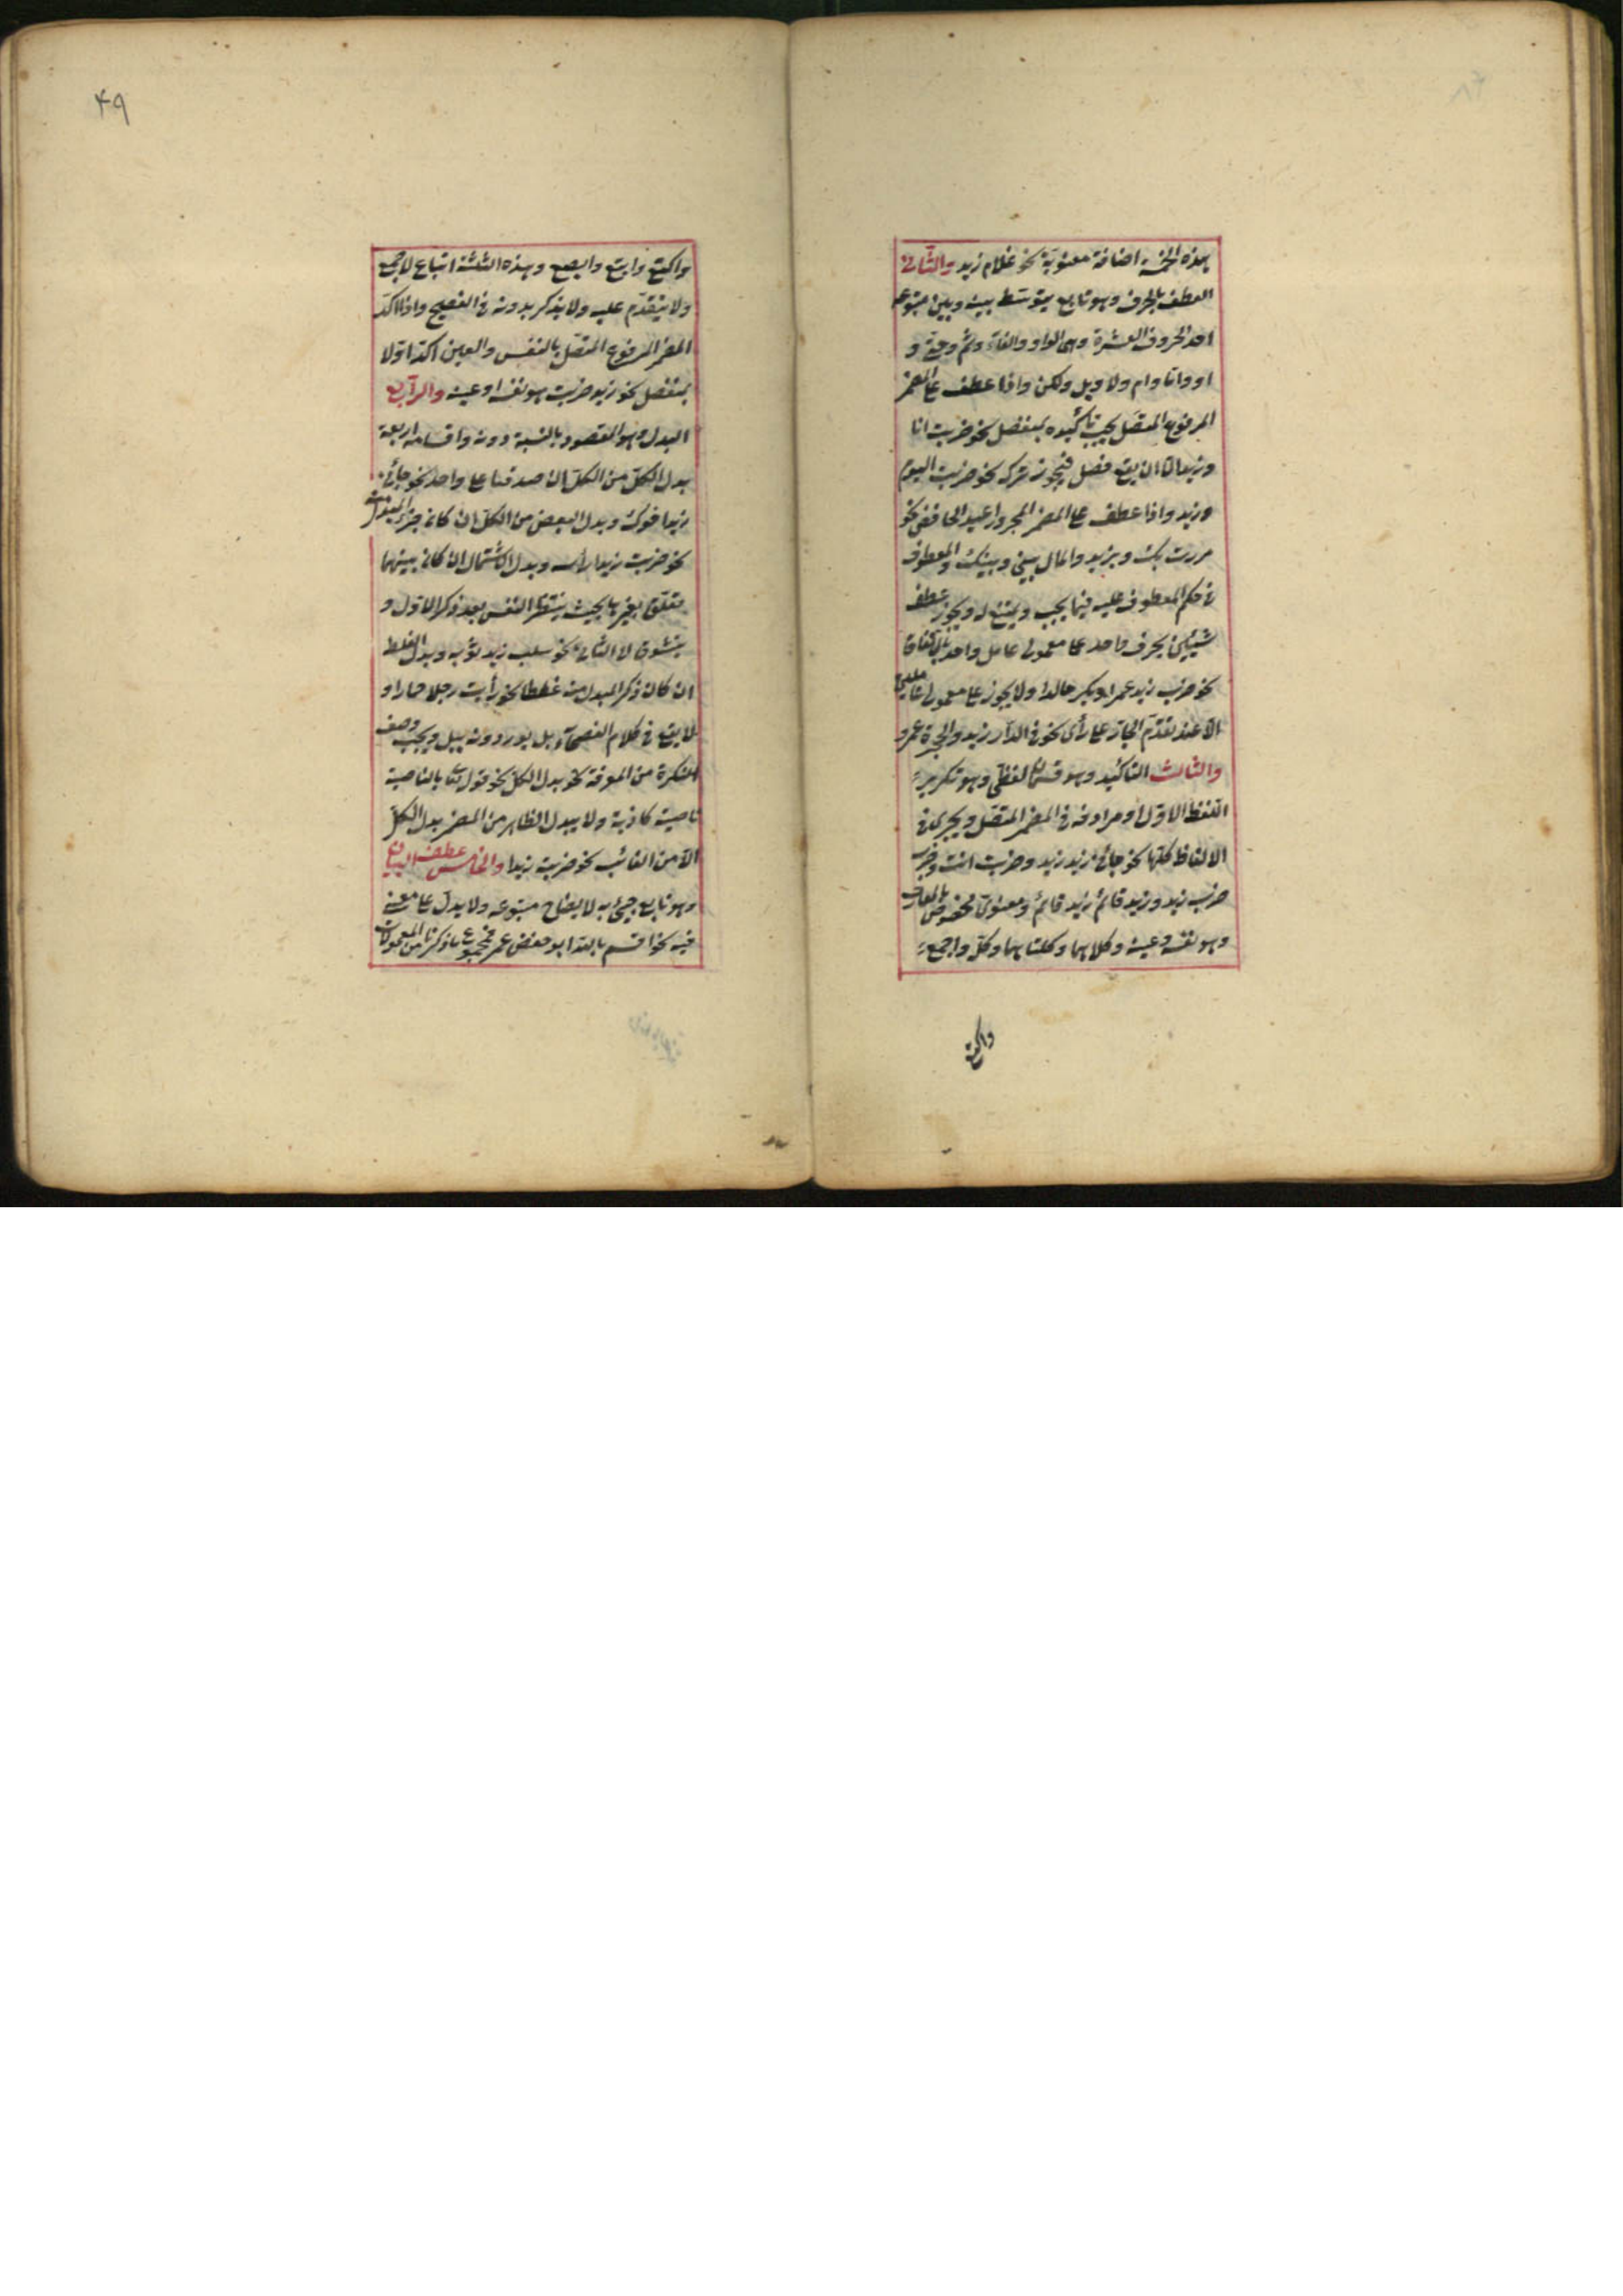 بهذه الخمسة اضافة معنوية نحو غلام زيد والثانى
العطف بالحرف وهو تابع يتوسّط بينه وبين متبوعه
احد الحروف العشرة وهى الواو والفاء وثم وحتى و
او واما وام ولا وبل ولكن واذا عطف على المضمر
المرفوع المتصل يجب تأكيده بمنفصل نحو ضربت انا
وزيد الا ان يقع فصل فيجوز تركه نحو ضربت اليوم
وزيد واذا عطف على المضمر المجرور اعيد الخافض نحو
مررت بك وبزيد والمال بينى وبينك والمعطوف
فى حكم المعطوف عليه فيما يجب ويمتنع له ويجوز عطف
شيئين بحرف واحد على معمولى عامل واحد بالاتفاق
نحو ضرب زيد عمرا وبكر خالدا ولا يجوز على معمولى عاملين
الا عند تقدّم الجارّ على رأى نحو فى الدار زيد والحجرة عمرو
والثالث التاكيد وهو قسمان لفظى وهو تكرير
اللفظ الاوّل او مرادفه فى المضمر المتصل ويجرى فى
الالفاظ كلّها نحو جائنى زيد زيد وضربت انت وضرب
ضرب زيد وزيد قائم زيد قائم ومعنوىّ مخصوص بالمعارف
وهو نفسه وعينه وكلاهما وكلتاهما وكلّ واجمع
واكتع
۴۹
واكتع وابتع وابصع وهذه الثلثة اتباع لاجمع
ولا يتقدّم عليه ولا يذكر بدونه فى الفصيح واذا اكّد
المضمر المرفوع المتصل بالنفس والعين اكّد اوّلا
بمنفصل نحو زيد ضربت هو نفسه او عينه والرابع
البدل وهو المقصود بالنسبة دونه واقسامه اربعة
بدل الكلّ من الكلّ ان صدقنا على واحد نحو جائنى
زيد اخوك وبدل البعض من الكلّ ان كان جزء المبدل منه
نحو ضربت زيدا رأسه وبدل الاشتمال ان كان بينهما
تعلّق بغيرها بحيث ينتظر النفس بعد ذكر الاوّل و
يتشوق الى الثانى نحو سلب زيد ثوبه وبدل الغلط
ان كان ذكر المبدل منه غلطا نحو رأيت رجلا حمارا و
لا يقع فى كلام الفصحاء بل يوردونه ببل ويجب وصف
النكرة من المعرفة نحو بدل الكلّ نحو قوله تعالى بالناصية
ناصية كاذبة ولا يبدل الظاهر من المضمر بدل الكلّ
الا من الغائب نحو ضربته زيدا والخامس عطف البيان
وهو تابع جيئ به لايضاح متبوعه ولا يدلّ على معنى
فيه نحو اقسم بالله ابو حفص عمر فمجموع ما ذكرنا من المعمولات